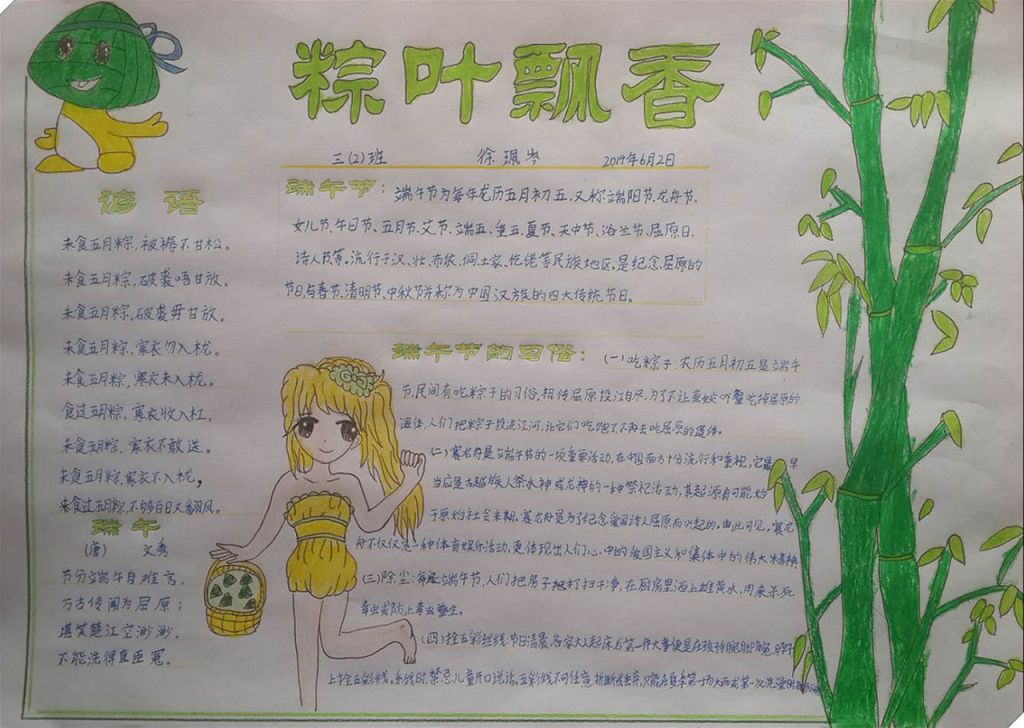 粽叶飘香
三(2)班 徐珮岑 2014年6月2日
谚语
未食五月粽,被褥不甘松。
未食五月粽,破裘唔甘放。
未食五月粽,破裘毋甘放。
未食五月粽,寒衣勿入栊。
未食五月粽,寒衣未入栊。
食过五月粽,寒衣收入杠,
未食五月粽,寒衣不敢送。
未食五月粽,寒衣不入栊,
未食过五月粽,不够百日又翻风。
端午
(唐) 文秀
节分端午自谁言,
万古传闻为屈原;
堪笑楚江空渺渺,
不能洗得直臣冤。
端午节:端午节为每年农历五月初五,又称端阳节、龙舟节、
女儿节、午日节、五月节、艾节、端五、重五、夏节、天中节、浴兰节、屈原日、
诗人节等。流行于汉、壮、布依、侗、土家、仡佬等民族地区。是纪念屈原的
节日,与春节、清明节、中秋节并称为中国汉族的四大传统节日。
端午节的习俗:(一)吃粽子:农历五月初五是端午
节,民间有吃粽子的习俗,相传屈原投江自尽,为了不让鱼蛟吓蟹吃掉屈原的
遗体,人们把粽子投进江河,让它们吃饱了不再去吃屈原的遗体。
(二)赛龙舟是端午节的一项重要活动,在中国南方十分流行和重视,它最早
当应是古越族人祭水神或龙神的一种祭祀活动,其起源有可能始
于原始社会末期。赛龙舟是为了纪念爱国诗人屈原而兴起的。由此可见,赛龙
舟不仅仅是一种体育娱乐活动,更体现出人们心中的爱国主义和集体中的伟大精神
(三)除尘:每逢端午节,人们把房子打扫干净,在厨房里洒上雄黄水,用来杀死
毒虫或防止毒虫孳生。
(四)拴五彩丝线:节日清晨,各家大人起床后第一件大事便是在孩子手腕、脚腕、脖子
上拴五彩线。系线时,禁忌儿童开口说话,五彩线不可任意折断或丢弃,只能在夏季第一场大雨或第一次洗澡时